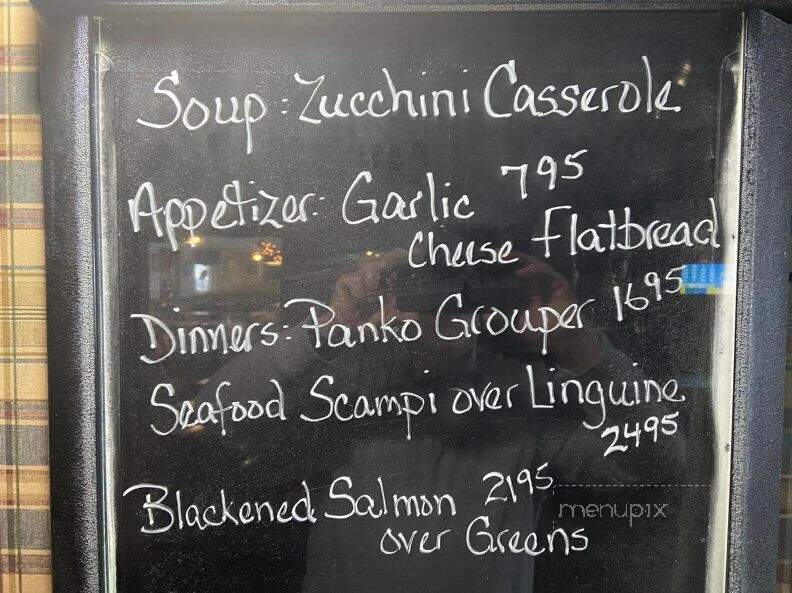 Soup: Zucchini Casserole
Appetizer: Garlic 795
Cheese Flatbread
Dinners: Panko Grouper 1695
Seafood Scampi over Linguine
2495
Blackened Salmon 2195
over Greens
menupix